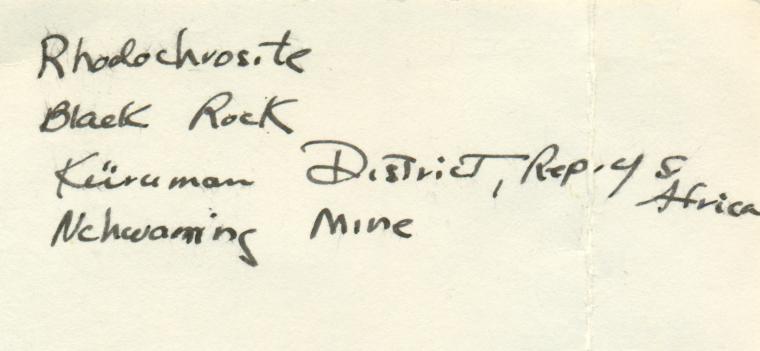 Rhodochrosite
Black Rock
Küruman District, Rep. of S.
Africa
Nchwaning Mine